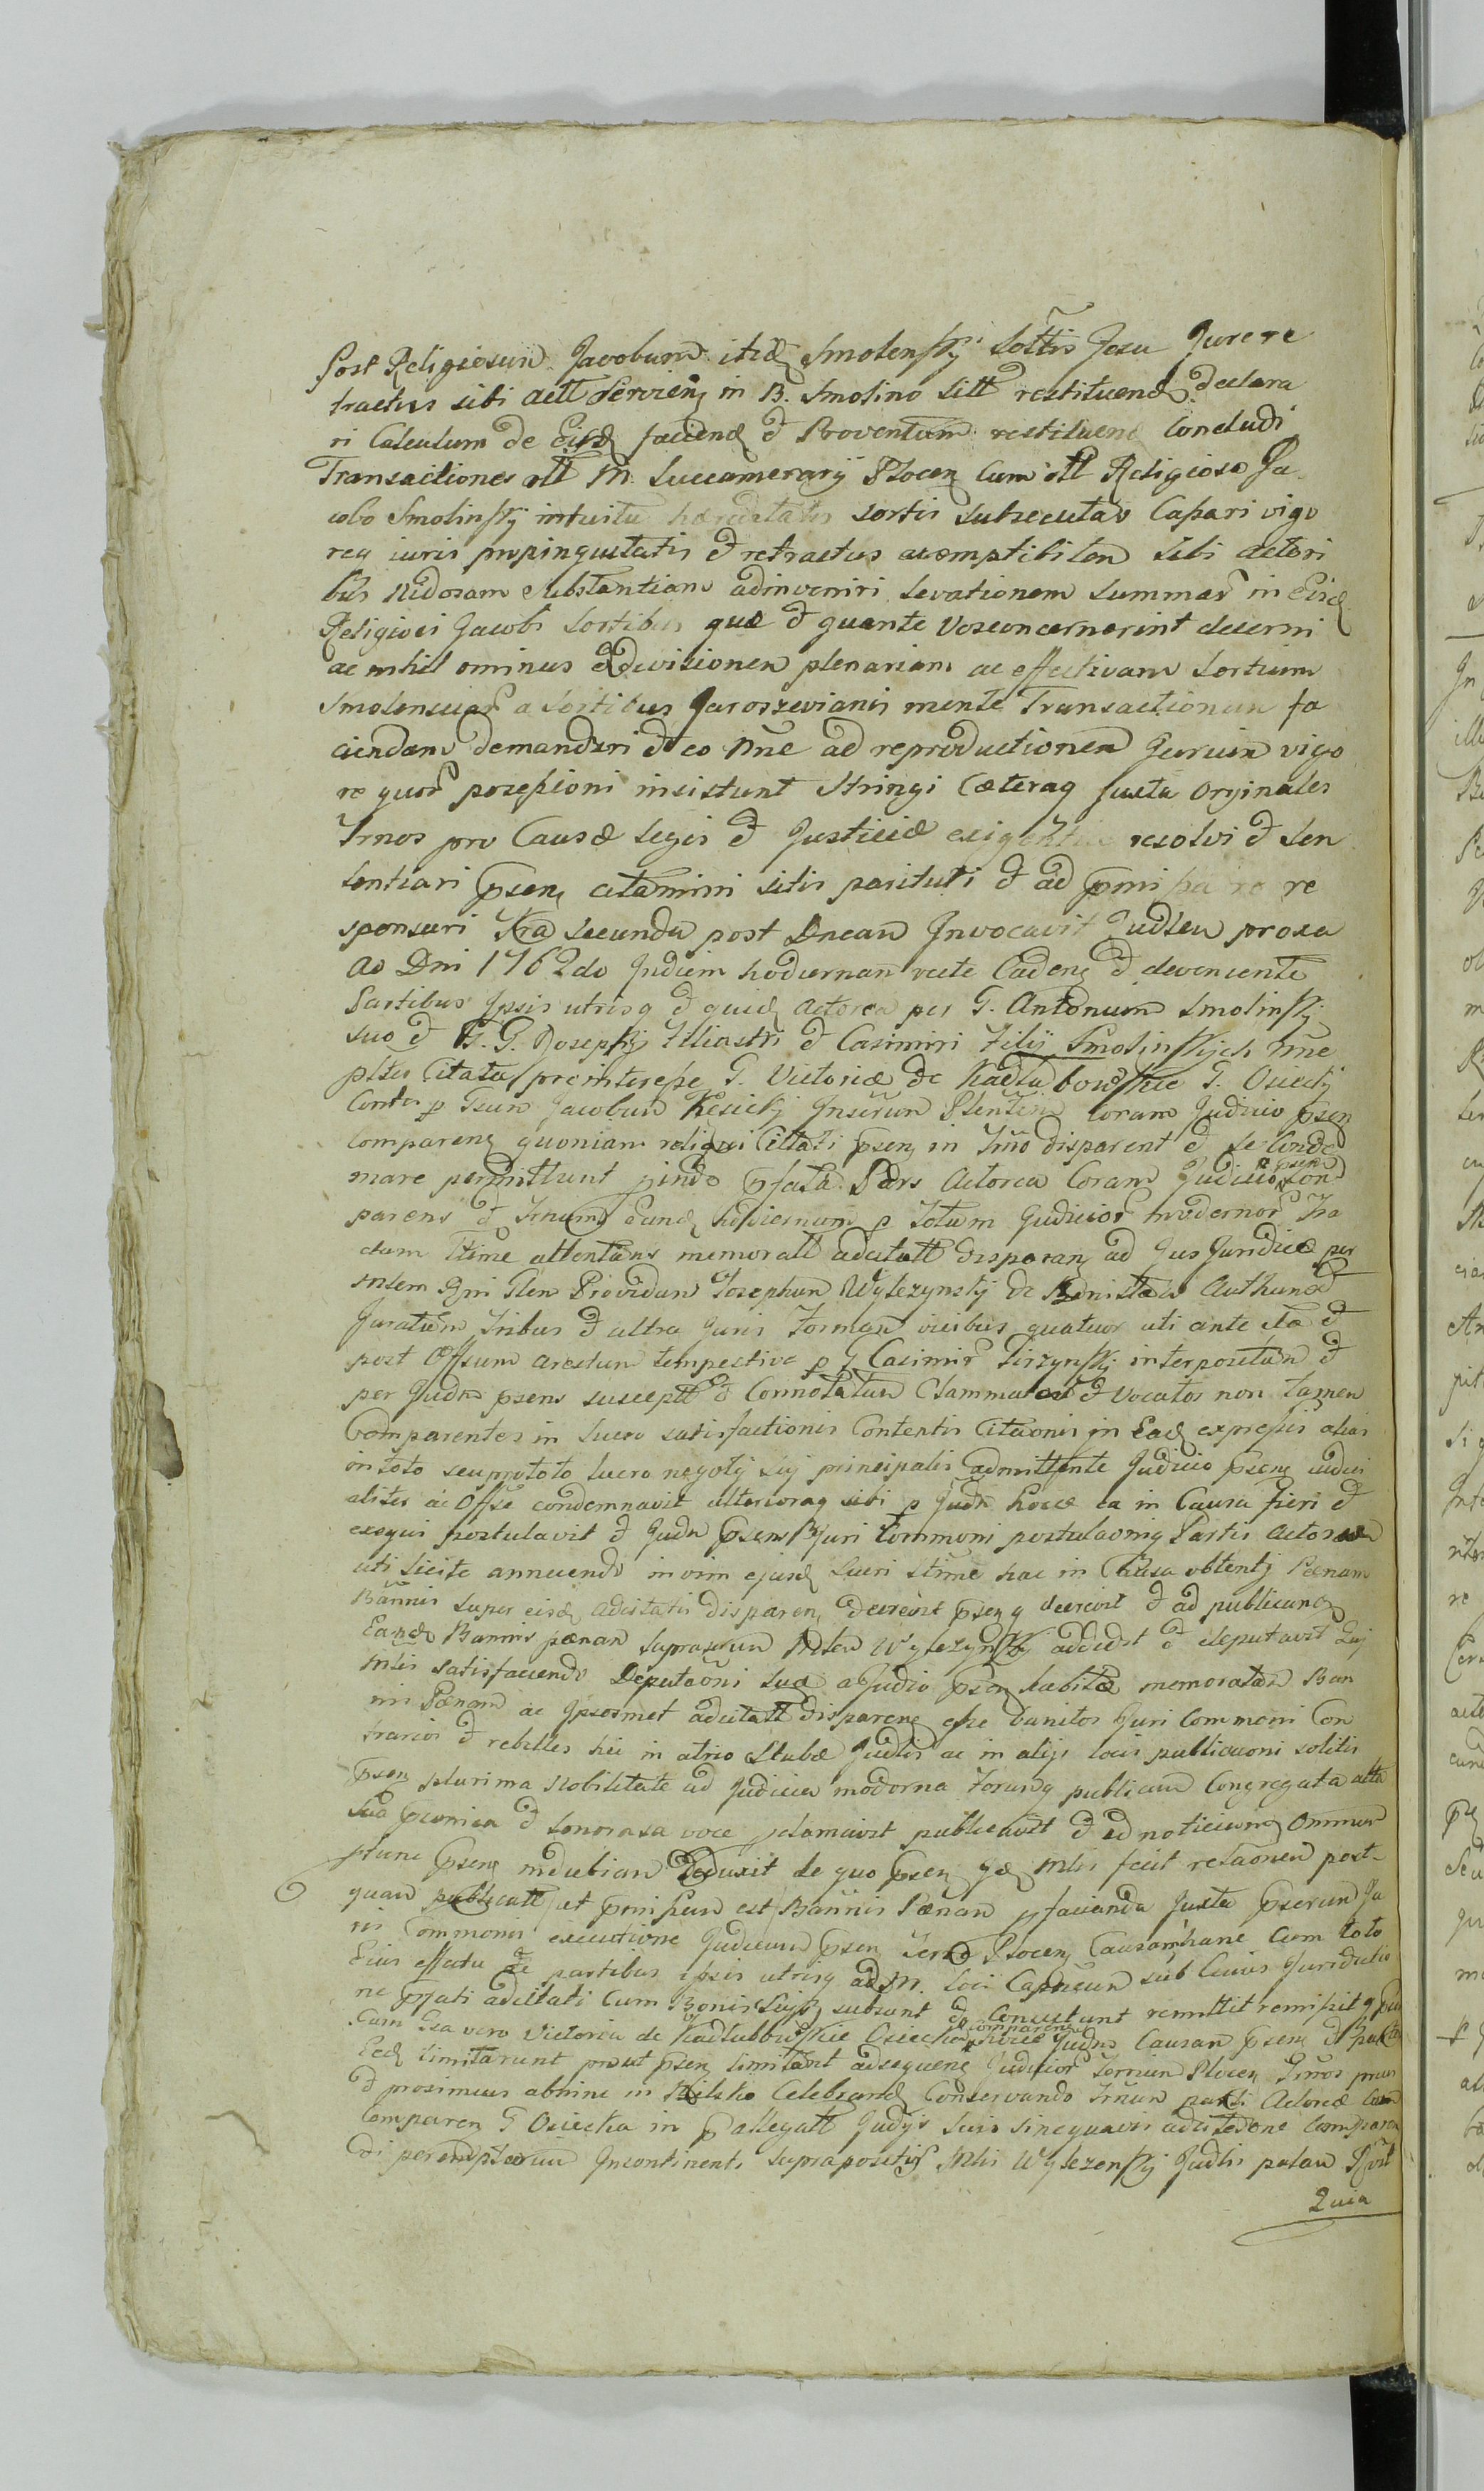 Post Religiosum Jacobum itid Smolensky Sottis Jesu Jure re
tractus sibi actt servien in B. Smolino sitt restituend declara
ri Calculum de Eisd faciend & Proventum restituend Concludi
Transactiones ott M. Succamerary Plocen Cum ott Religioso Ja
cobo Smolinsky intuitu hæreditatis sortis subsecutas Cassari vigo
req iuris propinquitatis & retractus acemptibilem sibi actori
bus Nidosam substantiam adinveniri levationem summar in Eisd
Religiosi Jacobi sortibus quæ & quante Vos concernerint decerni
ac nihil ominus Exdivisionem plenariam ac effectivam sortium
Smolensciar a sortibus Jaroszevianis mente Transactionum fa
ciendam demandari & eo nne ad reproductionem Jurium vigo
re quor possessioni insistunt Stringi Cæteraq juxta Orginales
Trnos pro Causæ legis & Justiciæ exigentia resolvi & sen
tentiari psen citamini sitis parituti & ad pmissa re
sponsuri Fra secunda post Dncam Invocavit Judlem proxa
Ao Dni 1762do Judicim hodiernam recte Caden & deveniente
Partibus Ipsis utrisq & quid Actorea per G. Antonum Smolinsky
suo & G. G. Josephy Filiastri & Casimiri Filij Smolinskych nne
plter Citata pro interesse G. Victoriæ de Kadłubowskie G. Osiecky
Conter p Gsum Jacobum Kesicky Inscrum Plenten coram Judicio psen
comparen quoniam reliqui Cittati psen in Trno disparent & se Conde
mare permittunt pinde pfata Pars Actorea Coram Judicio psen Com
parens & Trnum eund hodiernum p totum Judicior modernor Tra
ctum ltime attentans memoratt adcitatt disparen ad Jus Juridice per
mlem Rgni Glem Providum Josephum Wylezynsky de Authum
Juratum Tribus & ultra Juris Formam vicibus quatuor uti ante &
post Offsum arestum tempestive p G Casimir Pirzynsky interpositum &
per Judm psens suscepttt & Connotatum Clammatos & Vocatos non tamen
Comparentes in lucro satisfactionis Contentis Citaonis in Ead expressis alias
in toto seu pro toto lucro negoty sui principalis admittente Judicio psen Judici
aliter ac Offse condemnavit ulterioraq sibi p Judm hocce ea in Causa fieri &
exequi postulavit & Judm psens Juri Commoni postulaoniq Partis Actoreæ
uti licite annuendo in vim ejusd lucri ltime hac in Causa obtenty Pœnam
Bannis super eisd Adcitatis disparen decrevit psenq decrevit & ad publicand
Eand Bannis pœnam suprascum Mlem Wylezynsky addidit & deputavit Qui
Mlis satisfaciendo Deputaoni suæ a Judio psen habitæ memoratam Ban
ni Pœnam ac ipsosmet adcitatt disparen esse banitos Juri Commoni Con
trarios & rebelles hic in atrio Stubæ Judlis ac in alijs locis publicaoni solitis
psen plurima Nobilitate ad Judicia moderna Forumq publicum Congregata alta
sua & sonorosa voce pclamavit publicavit & ad noticiamq Omnium
ptunc psen indubiam deduxit de quo psen qd Mlis fecit relaonem post-
quam publicatt ut pmissum est Bannis Pœnam pfacienda juxta pscrum Ju
ris Commonis executione Judicium psen Terre Plocen Causam hanc Cum toto
Eius effectu & partibus ipsis utrisq ad M. loci Capneum sub Cuius Juridictio
ne pfati adcitati Cum Bonis Sujs subsunt & Consistunt remittit remisit q
Cum Gsa vero Victoria de Kadłubowskie Osiecka comparen hocce Judm Causam psen & Partes
Ead limitarunt prout psen limitavit adsequen Judicior Terrum Plocen Trnos prius
& proximius abhinc in Bilsko Celebrand Conservando Trnum parti Actoreæ Cum
Comparen G Osiecka in pallegatt Judijs suis sine quavis adcitaone Comparen
di perempterium Incontinenti suprapositus Mlis Wylezensky Judlis palam
Quia